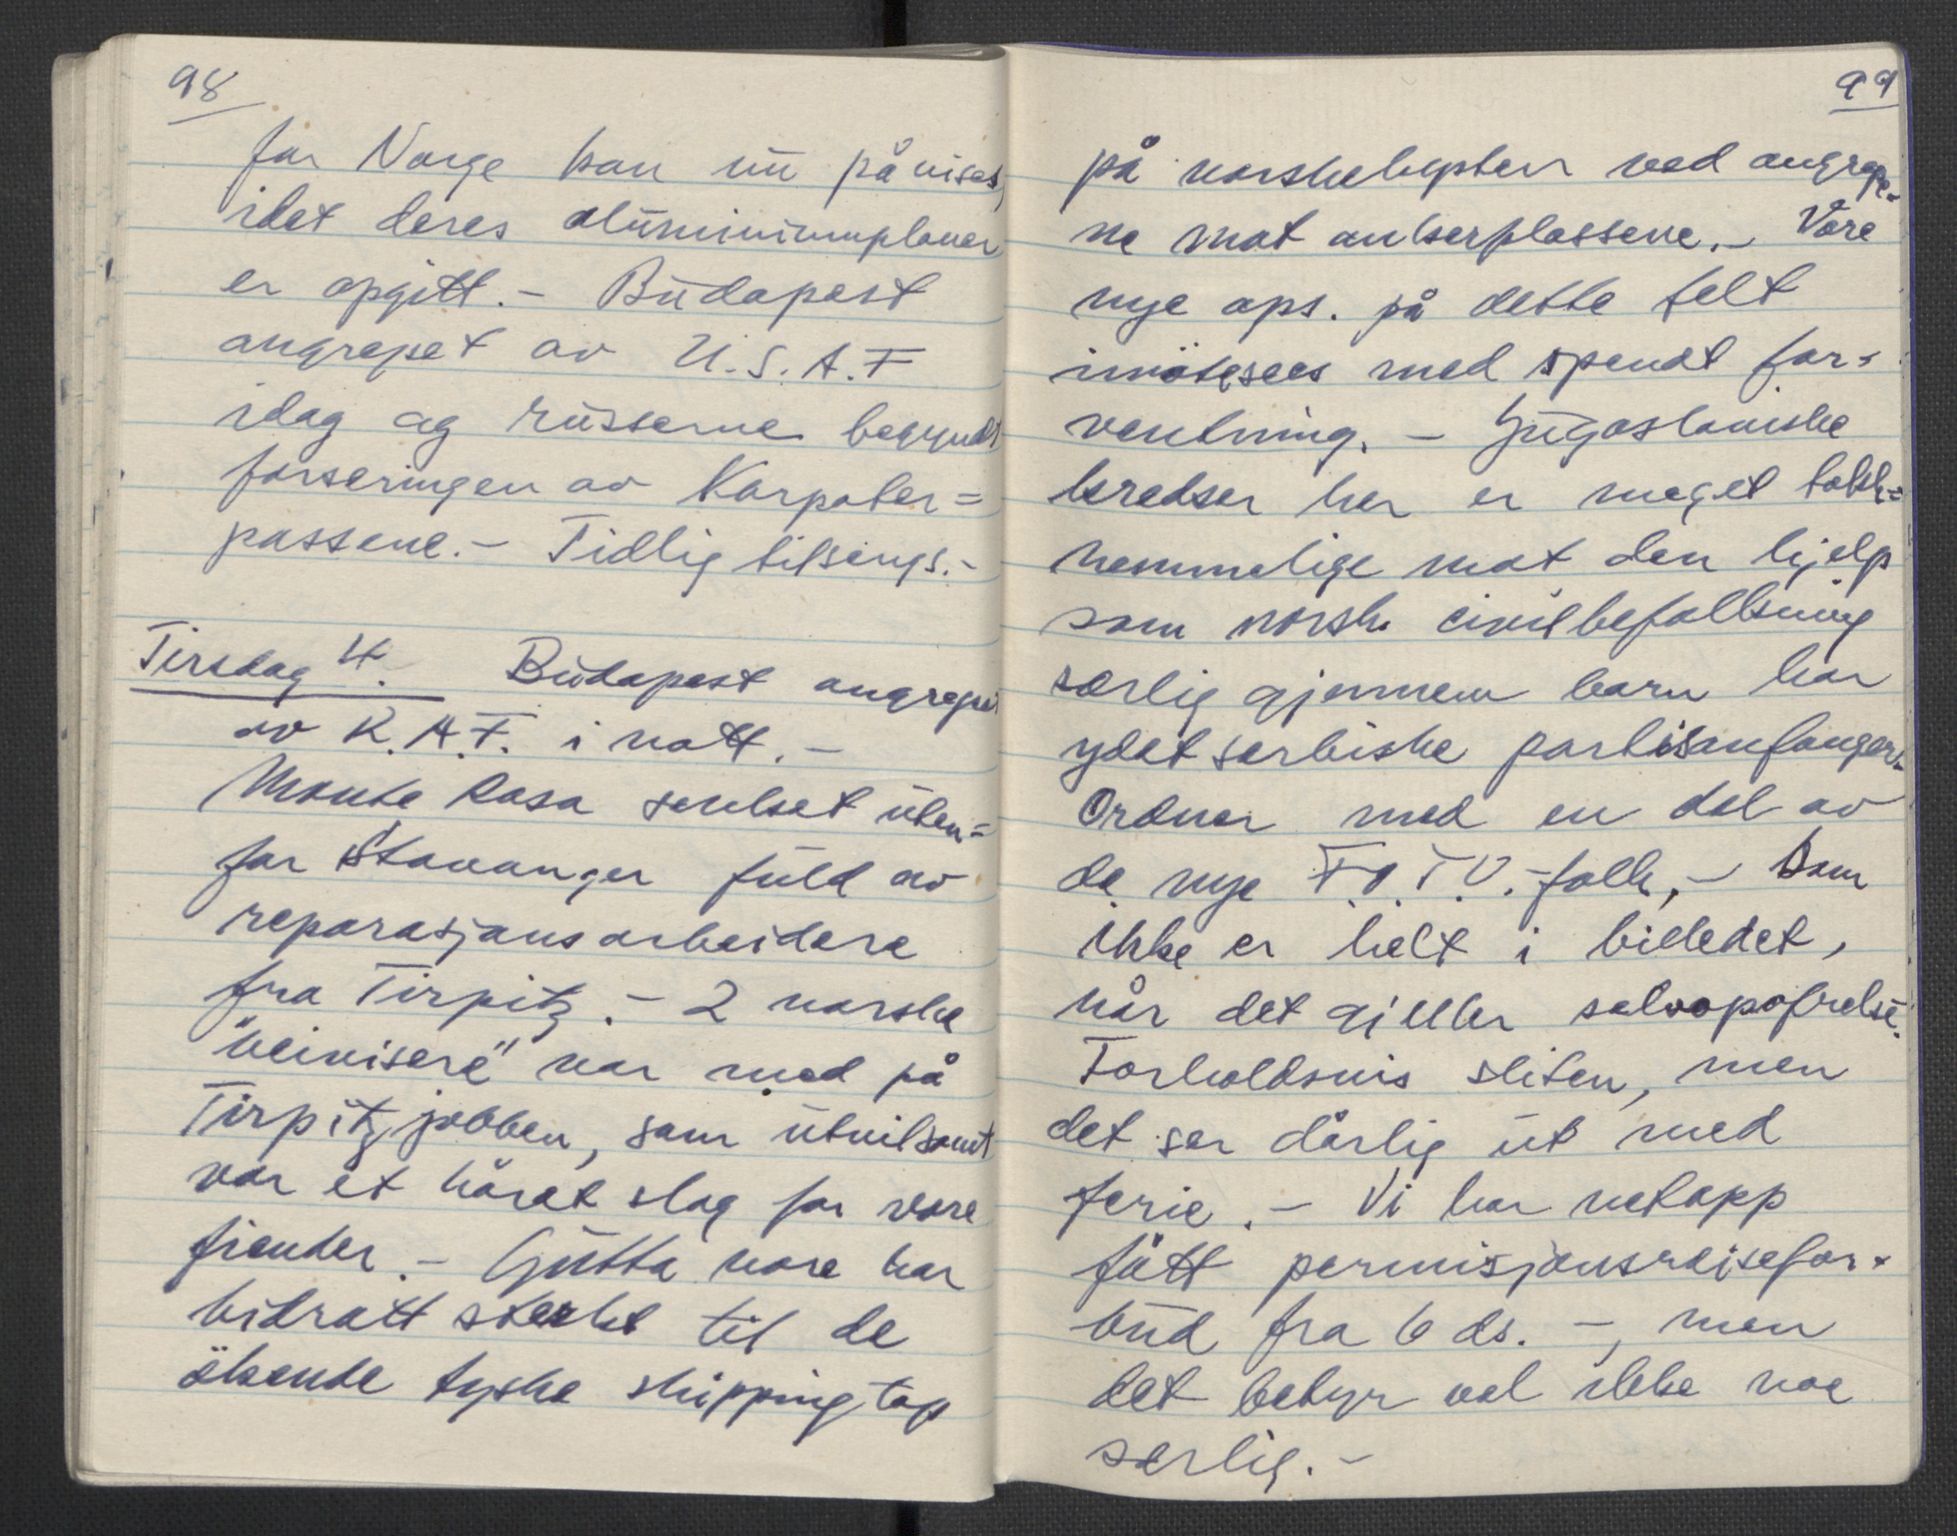 98
for Norge kan nu påvises,
idet deres aluminiumplaner
er opgitt. – Budapest
angrepet av U.S.A.F
idag og russerne begyndt
forseringen av Karpater=
passene. – Tidlig tilsengs. –
Tirsdag 4. Budapest angrepet
av R.A.F. i natt. –
Monte Rosa senket uten=
for Stavanger fuld av
reparasjonsarbeidere
fra Tirpitz. – 2 norske
"veivisere" var med på
Tirpitzjobben, som utvilsomt
var et hårdt slag for vore
fiender. – Gutta vore har
bidratt sterkt til de
økende tyske shippingtap
99
på norskekysten ved angrepe-
ne mot ankerplassene. – Våre
nye ops. på dette felt
imøtesees med spendt for-
ventning. – Jugoslaviske
kredser her er meget takk=
nemmelige mot den hjelp
som norsk civilbefolkning
særlig gjennem barn har
ydet serbiske partisanfanger. –
Ordner med en del av
de nye F.O.T.U.-folk, – som
ikke er helt i billedet,
når det gjeller selvopofrelse.
Forholdsvis sliten, men
det ser dårlig ut med
ferie. – Vi har netopp
fått permisjonsreisefor-
bud fra 6 ds. –, men
det betyr vel ikke noe
særlig. –